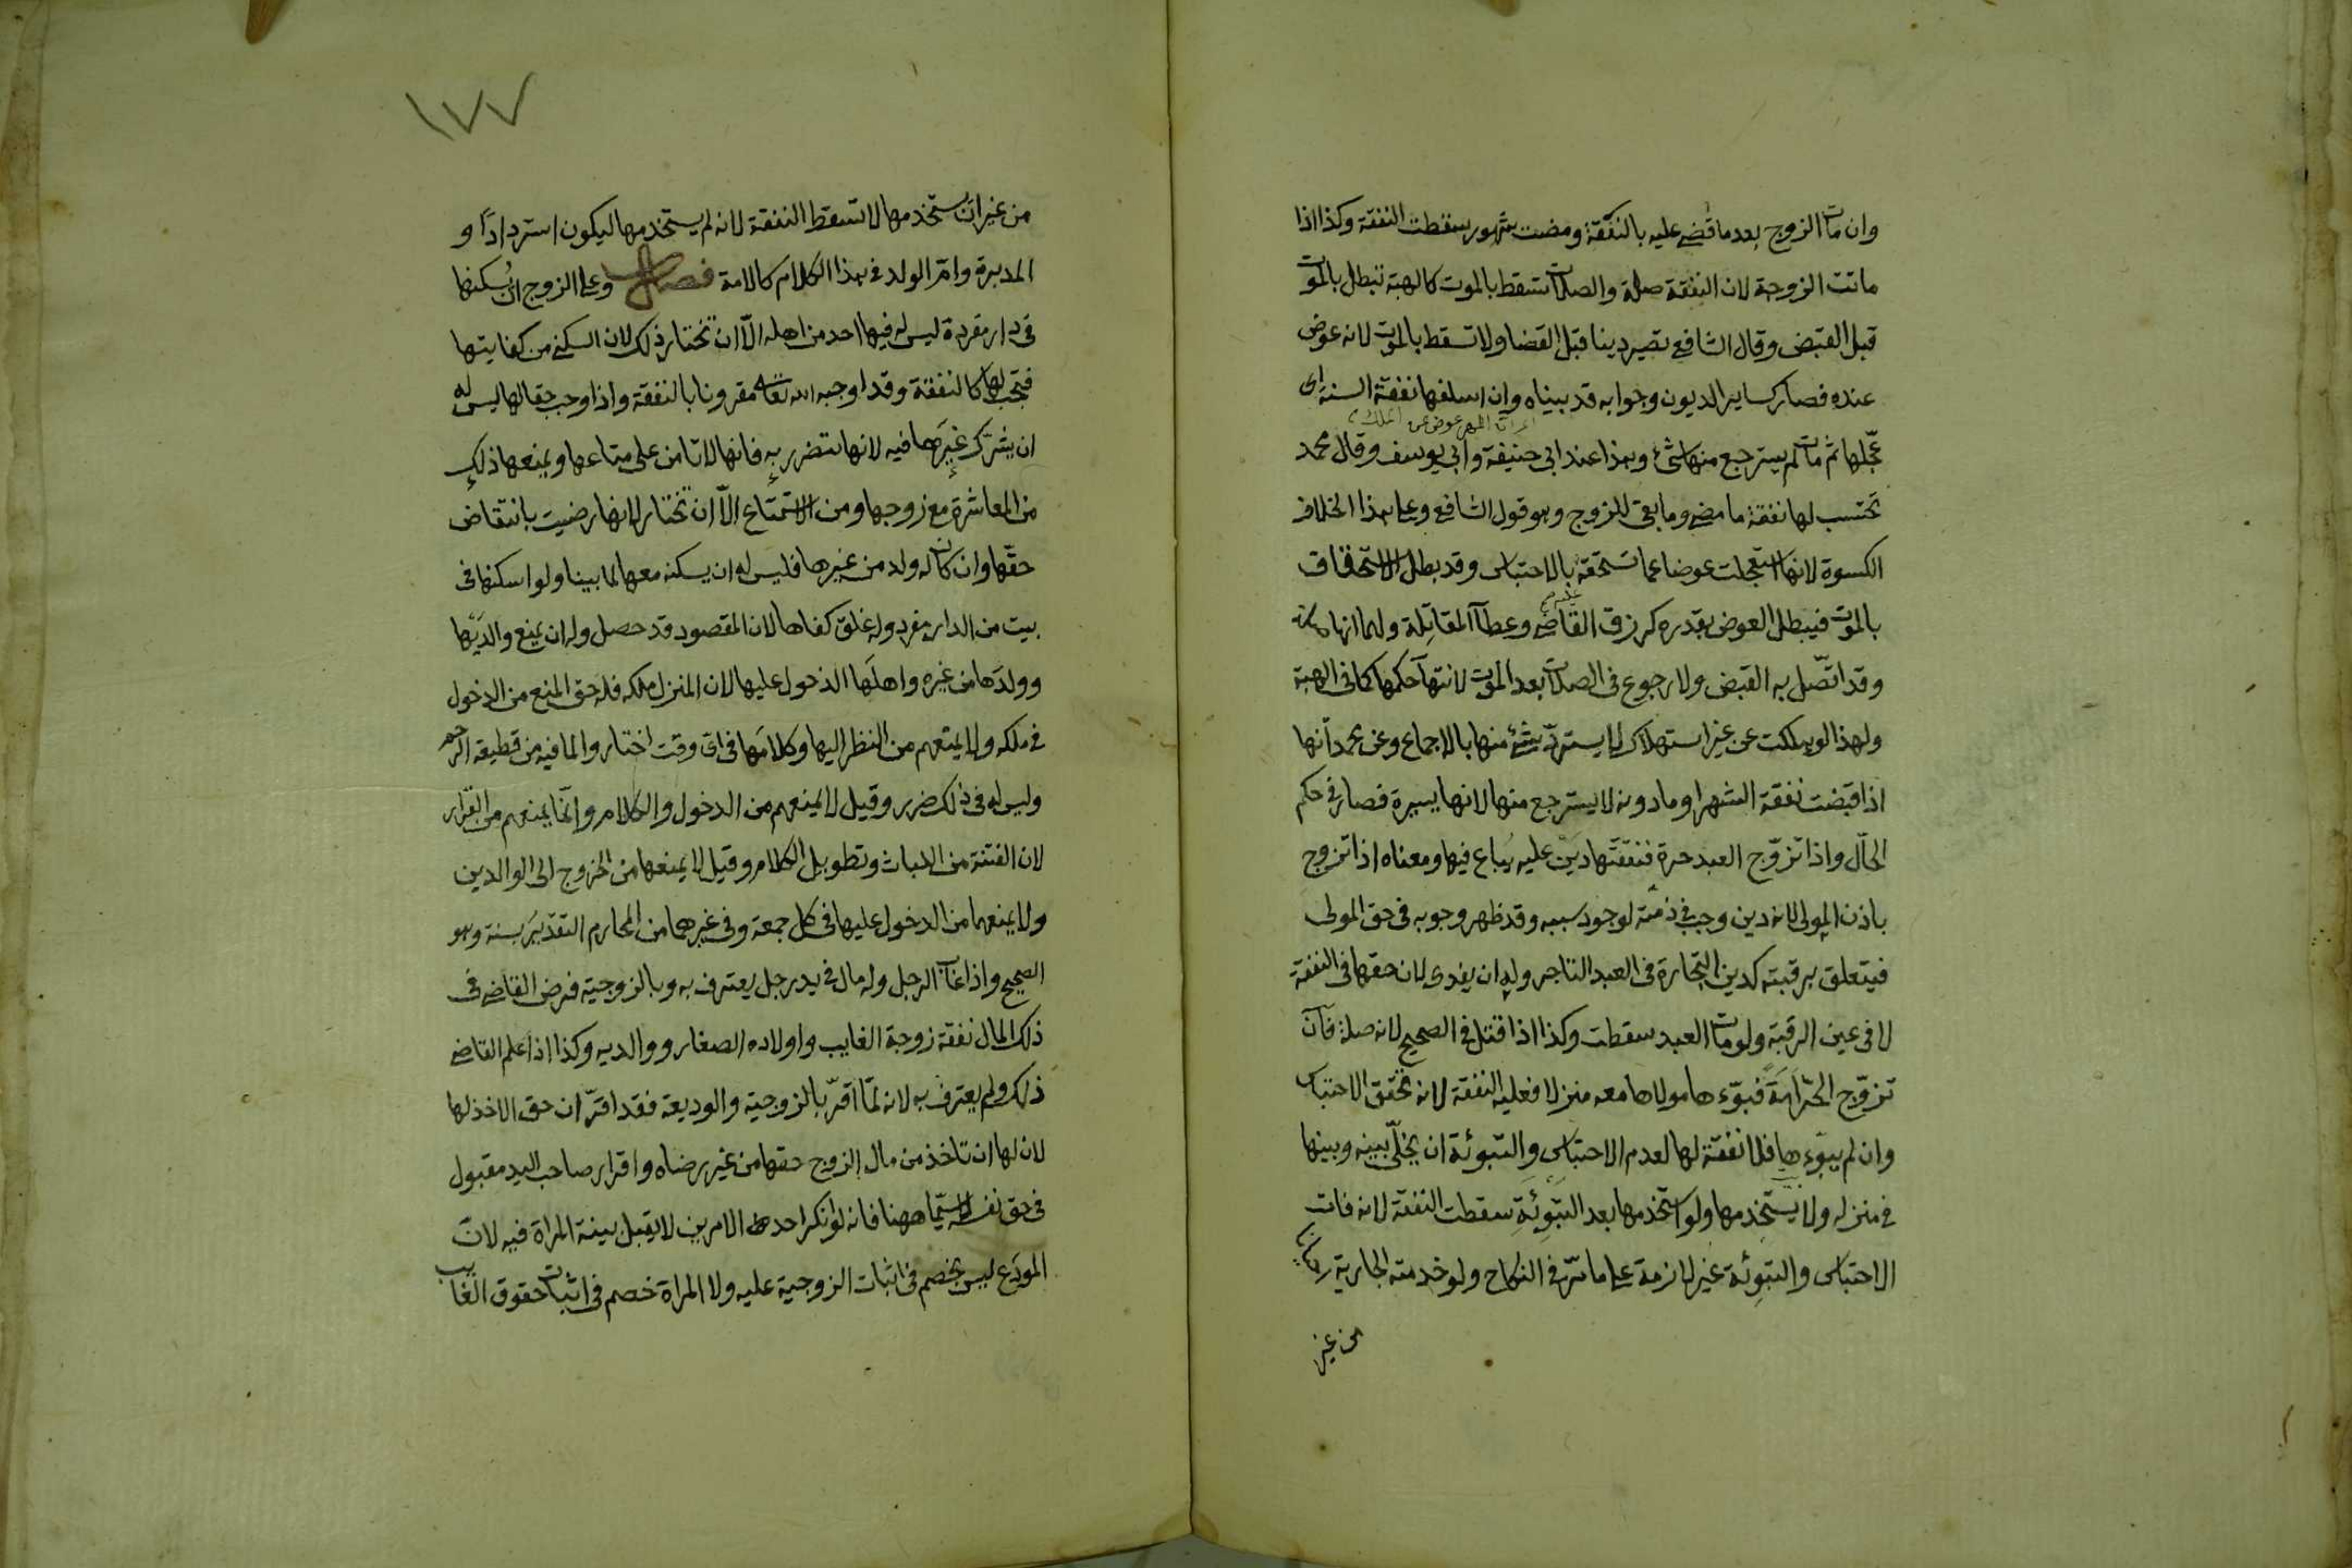 وان مات الزوج بعد ما قضى عليه بالنفقة ومضت شهور سقطت النفقة وكذا اذا
ماتت الزوجة لان النفقة صلة والصلات تسقط بالموت كالهبة تبطل بالموت
قبل القبض وقال الشافعي تصير دينا قبل القضا ولا تسقط بالموت لانه عوض
عنده فصار كساير الديون وجوابه قد بيناه وان اسلفها نفقة السنة اى
عجّلها ثم مات لم يسترجع منها شئ وهذا عند ابى حنيفة وابى يوسف وقال محمد
تحتسب لها نفقة ما مضى وما بقى للزوج وهو قول الشافعي وعلى هذا الخلاف
الكسوة لانها استعجلت عوضا عما تستحقه بالاحتباس وقد بطل الاستحقاق
بالموت فيبطل العوض بقدره كرزق القاضى وعطآ المقاتلة ولهما انها صلة
وقد اتّصل به القبض ولا رجوع فى الصلات بعد الموت لانتهآ حكمها كما فى الهبة
ولهذا لو هلكت عن غير استهلاك لا يستردّ شئ منها بالاجماع وعن محمد انها
اذا قبضت نفقة الشهر او ما دونه لا يسترجع منها لانها يسيرة فصار فى حكم
الحال واذا تزوّج العبد حرة فنفقتها دين عليه يُباع فيها ومعناه اذا تزوج
باذن المولى لانه دين وجب فى ذمته لوجود سببه وقد ظهر وجوبه فى حق المولى
فيتعلق برقبته كدين التجارة فى العبد التاجر وله ان يفدى لان حقها فى النفقة
لا فى عين الرقبة ولو مات العبد سقطت وكذا اذا قتل فى الصحيح لانه صلة فآن
تزوّج الحرّ امَةً فبوّءها مولاها معه منزلا فعليه النفقة لانه تحقق الاحتباس
وان لم يبوّءها فلا نفقة لها لعدم الاحتباس والتبوئة ان يخلّى بينه وبينها
فى منزله ولا يستخدمها ولو استخدمها بعد التبوِئَةِ سقطت النفقة لانه فات
الاحتباس والتبوِئة غير لازمة على ما مرّ فى النكاح ولو خدمته الجارية
من غير
١٧٧
من غير ان يستخدمها لا تسقط النفقة لانه لم يستخدمها ليكون استردادًا و
المدبرة وامّ الولد فى هذا الكلام كالامة فصل وعلى الزوج ان يُسكنها
فى دار مفردة ليس له فيها احد من اهله الّا ان تختار ذلك لان السكنى من كفايتها
فتجب لها كالنفقة وقد اوجبه الله تعالى مقرونا بالنفقة واذا وجب حقا لها ليس له
ان يشرّك غيرَها فيه لانها تتضرر به فانها لا تامن على متاعها ويمنعها ذلك
من المعاشرة مع زوجها ومن الاستمتاع الّا ان تختار لانها رضيت بانتقاض
حقّها وان كان له ولد من غيرها فليس له ان يسكنه معها لما بينا ولو اسكنها فى
بيت من الدار مفرد وله غلق كفاها لان المقصود قد حصل وله ان يمنع والدَيّها
وولدَها من غيره واهلَها الدخول عليها لان المنزل ملكه فله حق المنع من الدخول
فى ملكه ولا يمنعهم من النظر اليها وكلامَها فى اىّ وقت اختاروا لما فيه من قطيعة الرحم
وليس له فى ذلك ضرر وقيل لا يمنعهم من الدخول والكلام وانّما يمنعهم من القرار
لان الفتنة من اللباث وتطويل الكلام وقيل لا يمنعها من الخروج الى الوالدين
ولا يمنعهما من الدخول عليها فى كل جمعة وفى غيرهما من المحارم التقدير بسنة وهو
الصحيح واذا غاب الرجل وله مال فى يد رجل يعترف به وبالزوجية فرض القاضى فى
ذلك المال نفقة زوجة الغايب واولاده الصغار ووالديه وكذا اذا علم القاضى
ذلك ولم يعترف به لانه لمّا اقرّ بالزوجية والوديعة فقد اقرّ ان حق الاخذ لها
لان لها ان تاخذ من مال الزوج حقها من غير رضاه واقرار صاحب اليد مقبول
فى حق نفسه لا سيّما ههنا فانه لو انكر احد الامرين لا يقبل بينة المراة فيه لانّ
المودَع ليس بخصم فى اثبات الزوجية عليه ولا المراة خصم فى اثبات حقوق الغايب